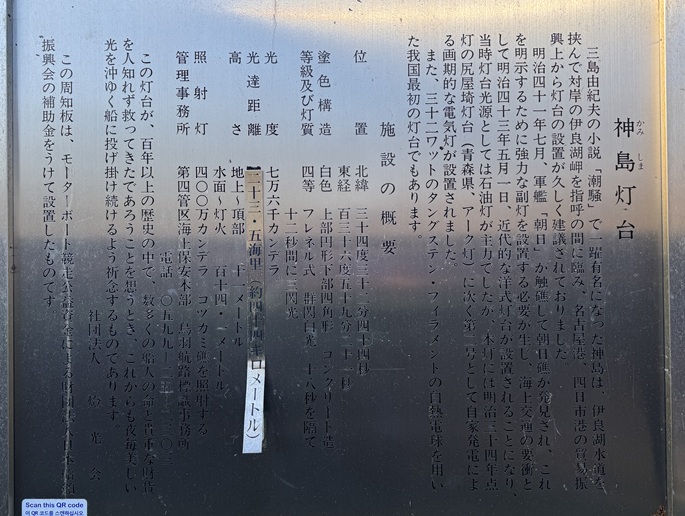 神島灯台
かみ しま
三島由紀夫の小説「潮騒」で一躍有名になった神島は、伊良湖水道を
挟んで対岸の伊良湖岬を指呼の間に臨み、名古屋港、四日市港の貿易振
興上から灯台の設置が久しく建議されておりました。
明治四十一年七月、軍艦「朝日」が触礁して朝日礁が発見され、これ
を明示するために強力な副灯を設置する必要が生じ、海上交通の要衝と
して明治四十三年五月一日、近代的な洋式灯台が設置されることになり、
当時灯台光源としては石油灯が主力でしたが、本灯には明治三十四年点
灯の尻屋埼灯台(青森県、アーク灯)に次ぐ第二号として自家発電によ
る画期的な電気灯が設置されました。
また、三十二ワットのタングステン・フィラメントの白熱電球を用い
た我国最初の灯台でもあります。
施設の概要
位置 北緯 三十四度三十二分四十四秒
東経 百三十六度五十九分二十一秒
塗色構造 白色 上部円形下部四角形 コンクリート造
等級及び灯質 四等 フレネル式 群閃白光 三十秒を隔て
十二秒間に二閃光
光度 七万六千カンデラ
光達距離 二十三・五海里(約四十四キロメートル)
高さ 地上~頂部 十一メートル
水面~灯火 百十四・一メートル
照射灯 四〇〇万カンデラ コツカミ礁を照射する
管理事務所 第四管区海上保安本部 鳥羽航路標識事務所
電話 〇五九九-二五-
この灯台が、百年以上の歴史の中で、数多くの船人の命と貴重な財貨
を人知れず救ってきたであろうことを想うとき、これからも夜毎美しい
光を沖ゆく船に投げ掛け続けるよう祈念するものであります。
社団法人 燈光会
この周知板は、モーターボート競走公益資金による財団法人日本
振興会の補助金をうけて設置したものです。
Scan this QR code
이 QR 코드를 스캔하십시오